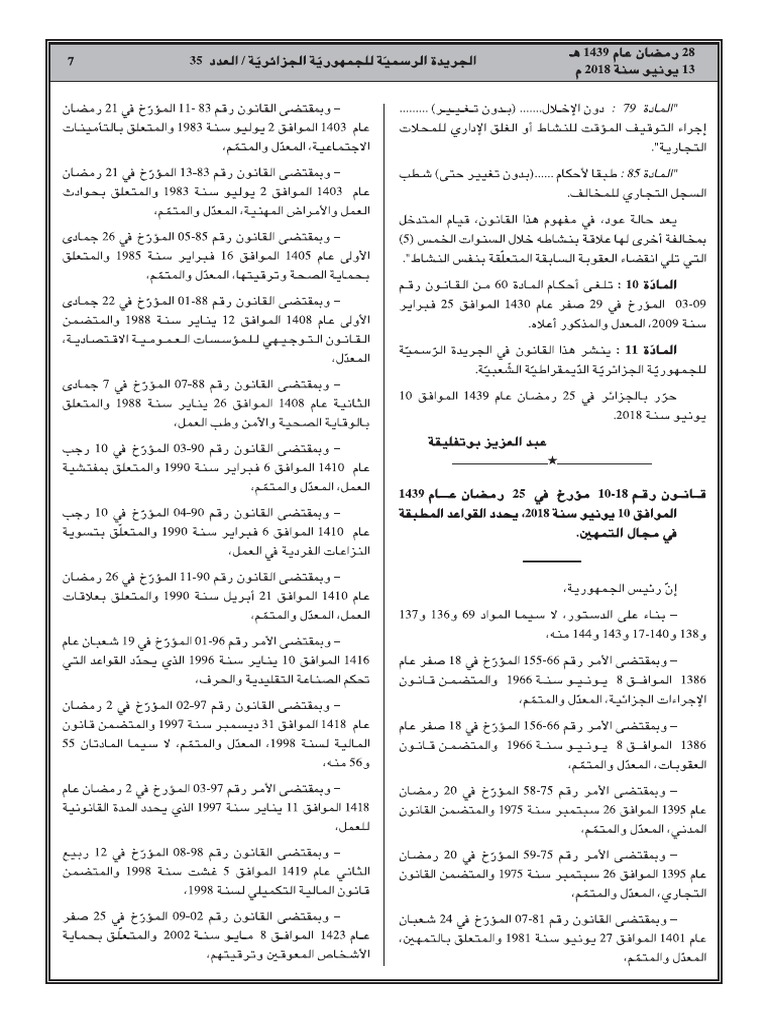 28 رمضان عام 1439 هـ
13 يونيو سنة 2018 م
الجريدة الرسميّة للجمهوريّة الجزائريّة / العدد 35
7
"المادة 79 : دون الإخلال....... (بدون تغيير) .........
إجراء التوقيف المؤقت للنشاط أو الغلق الإداري للمحلات
التجارية".
"المادة 85 : طبقا لأحكام ......(بدون تغيير حتى) شطب
السجل التجاري للمخالف.
يعد حالة عود، في مفهوم هذا القانون، قيام المتدخل
بمخالفة أخرى لها علاقة بنشاطه خلال السنوات الخمس (5)
التي تلي انقضاء العقوبة السابقة المتعلّقة بنفس النشاط".
المادّة 10 : تلغى أحكام المادة 60 من القانون رقم
09-03 المؤرخ في 29 صفر عام 1430 الموافق 25 فبراير
سنة 2009، المعدل والمذكور أعلاه.
المادّة 11 : ينشر هذا القانون في الجريدة الرّسميّة
للجمهوريّة الجزائريّة الدّيمقراطيّة الشّعبيّة.
حرّر بالجزائر في 25 رمضان عام 1439 الموافق 10
يونيو سنة 2018.
عبد العزيز بوتفليقة
★
قانون رقم 18-10 مؤرخ في 25 رمضان عام 1439
الموافق 10 يونيو سنة 2018، يحدد القواعد المطبقة
في مجال التمهين.
إنّ رئيس الجمهورية،
– بناء على الدستور، لا سيما المواد 69 و136 و137
و138 و140-17 و143 و144 منه،
– وبمقتضى الأمر رقم 66-155 المؤرّخ في 18 صفر عام
1386 الموافق 8 يونيو سنة 1966 والمتضمن قانون
الإجراءات الجزائية، المعدّل والمتمّم،
– وبمقتضى الأمر رقم 66-156 المؤرّخ في 18 صفر عام
1386 الموافق 8 يونيو سنة 1966 والمتضمن قانون
العقوبات، المعدّل والمتمّم،
– وبمقتضى الأمر رقم 75-58 المؤرّخ في 20 رمضان
عام 1395 الموافق 26 سبتمبر سنة 1975 والمتضمن القانون
المدني، المعدّل والمتمّم،
– وبمقتضى الأمر رقم 75-59 المؤرّخ في 20 رمضان
عام 1395 الموافق 26 سبتمبر سنة 1975 والمتضمن القانون
التجاري، المعدّل والمتمّم،
– وبمقتضى القانون رقم 81-07 المؤرّخ في 24 شعبان
عام 1401 الموافق 27 يونيو سنة 1981 والمتعلق بالتمهين،
المعدّل والمتمّم،
– وبمقتضى القانون رقم 83 -11 المؤرّخ في 21 رمضان
عام 1403 الموافق 2 يوليو سنة 1983 والمتعلق بالتأمينات
الاجتماعية، المعدّل والمتمّم،
– وبمقتضى القانون رقم 83-13 المؤرّخ في 21 رمضان
عام 1403 الموافق 2 يوليو سنة 1983 والمتعلق بحوادث
العمل والأمراض المهنية، المعدّل والمتمّم،
– وبمقتضى القانون رقم 85-05 المؤرّخ في 26 جمادى
الأولى عام 1405 الموافق 16 فبراير سنة 1985 والمتعلق
بحماية الصحة وترقيتها، المعدّل والمتمّم،
– وبمقتضى القانون رقم 88-01 المؤرّخ في 22 جمادى
الأولى عام 1408 الموافق 12 يناير سنة 1988 والمتضمن
القانون التوجيهي للمؤسسات العمومية الاقتصادية،
المعدّل،
– وبمقتضى القانون رقم 88-07 المؤرّخ في 7 جمادى
الثانية عام 1408 الموافق 26 يناير سنة 1988 والمتعلق
بالوقاية الصحية والأمن وطب العمل،
– وبمقتضى القانون رقم 90-03 المؤرّخ في 10 رجب
عام 1410 الموافق 6 فبراير سنة 1990 والمتعلق بمفتشية
العمل، المعدّل والمتمّم،
– وبمقتضى القانون رقم 90-04 المؤرّخ في 10 رجب
عام 1410 الموافق 6 فبراير سنة 1990 والمتعلّق بتسوية
النزاعات الفردية في العمل،
– وبمقتضى القانون رقم 90-11 المؤرّخ في 26 رمضان
عام 1410 الموافق 21 أبريل سنة 1990 والمتعلق بعلاقات
العمل، المعدّل والمتمّم،
– وبمقتضى الأمر رقم 96-01 المؤرّخ في 19 شعبان عام
1416 الموافق 10 يناير سنة 1996 الذي يحدّد القواعد التي
تحكم الصناعة التقليدية والحرف،
– وبمقتضى القانون رقم 97-02 المؤرّخ في 2 رمضان
عام 1418 الموافق 31 ديسمبر سنة 1997 والمتضمن قانون
المالية لسنة 1998، المعدّل والمتمّم، لا سيما المادتان 55
و56 منه،
– وبمقتضى الأمر رقم 97-03 المؤرخ في 2 رمضان عام
1418 الموافق 11 يناير سنة 1997 الذي يحدد المدة القانونية
للعمل،
– وبمقتضى القانون رقم 98-08 المؤرخ في 12 ربيع
الثاني عام 1419 الموافق 5 غشت سنة 1998 والمتضمن
قانون المالية التكميلي لسنة 1998،
– وبمقتضى القانون رقم 02-09 المؤرخ في 25 صفر
عام 1423 الموافق 8 مايو سنة 2002 والمتعلّق بحماية
الأشخاص المعوقين وترقيتهم،